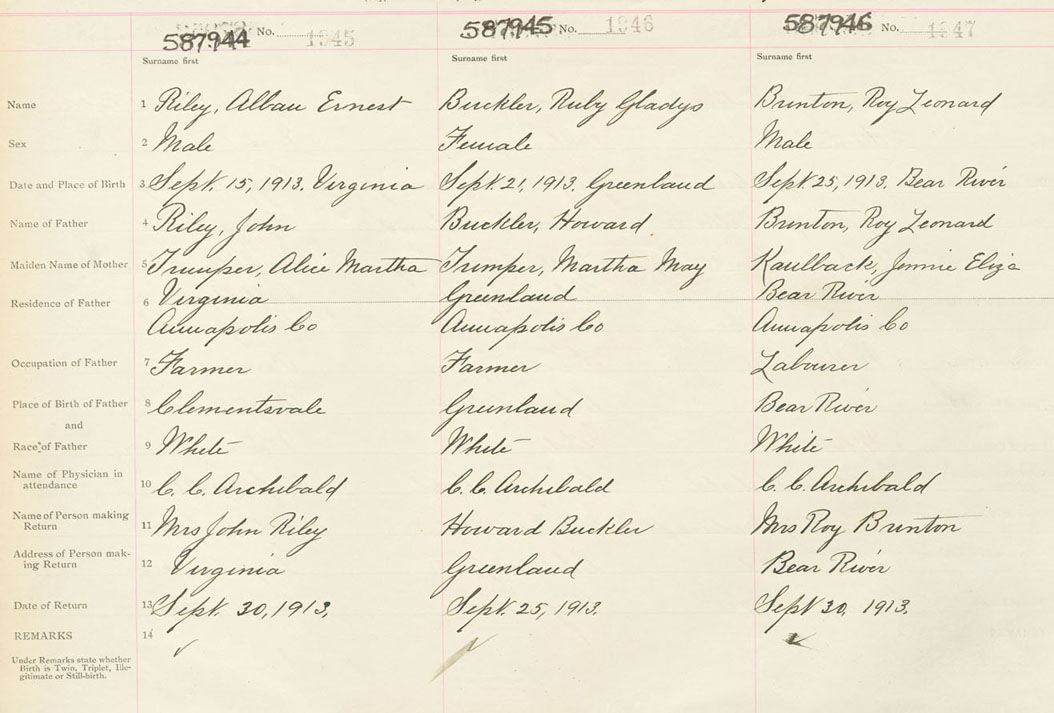 587944 No. 1945 587945 No. 1946 587946 No. 1947
Surname first Surname first Surname first
Name 1 Riley, Alban Ernest Buckler, Ruby Gladys Brinton, Roy Leonard
Sex 2 Male Female Male
Date and Place of Birth 3 Sept. 15, 1913. Virginia Sept. 21, 1913. Greenland Sept 25, 1913. Bear River
Name of Father 4 Riley, John Buckler, Howard Brinton, Roy Leonard
Maiden Name of Mother 5 Trimper, Alice Martha Trimper, Martha May Kaulback, Jennie Eliza
Residence of Father 6 Virginia Greenland Bear River
Annapolis Co Annapolis Co Annapolis Co
Occupation of Father 7 Farmer Farmer Labourer
Place of Birth of Father 8 Clementsvale Greenland Bear River
and
Race of Father 9 White White White
Name of Physician in
attendance 10 C. C. Archibald C. C. Archibald C. C. Archibald
Name of Person making
Return 11 Mrs John Riley Howard Buckler Mrs Roy Brinton
Address of Person mak-
ing Return 12 Virginia Greenland Bear River
Date of Return 13 Sept. 30, 1913. Sept. 25, 1913. Sept 30. 1913.
REMARKS 14
Under Remarks state whether
Birth is Twin, Triplet, Ille-
gitimate or Still-birth.